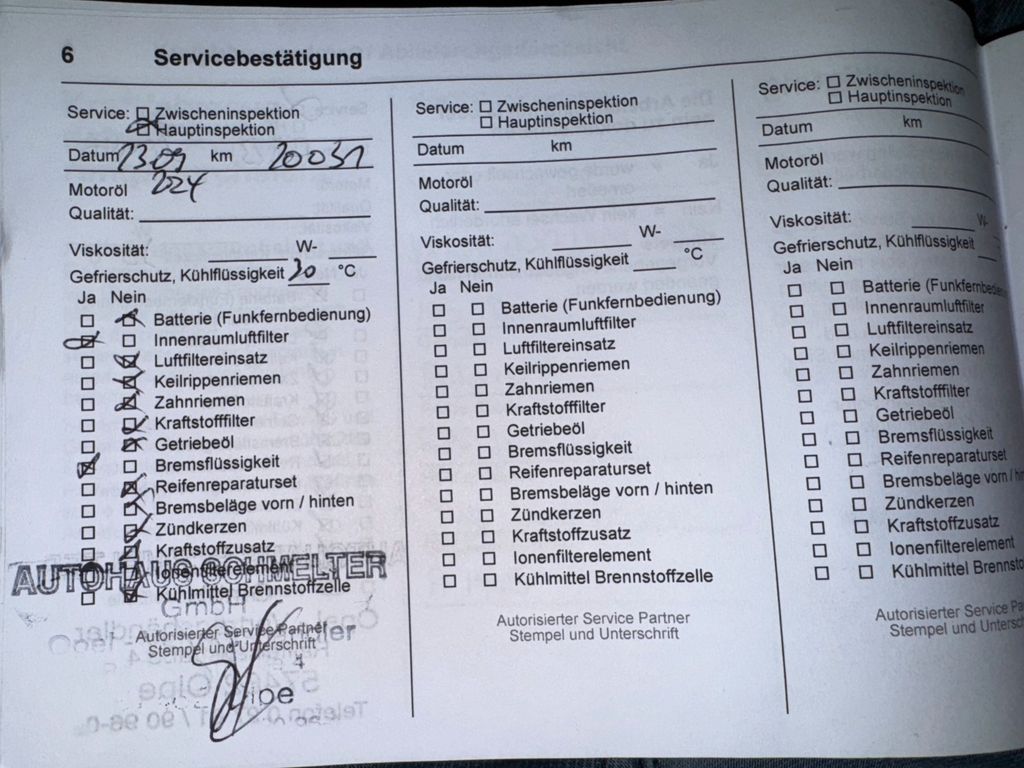 6 Servicebestätigung
Service: Zwischeninspektion
Hauptinspektion
Datum 23.09 km 20031
224
Motoröl
Qualität:
Viskosität: W-
Gefrierschutz, Kühlflüssigkeit 30 °C
Ja Nein
Batterie (Funkfernbedienung)
Innenraumluftfilter
Luftfiltereinsatz
Keilrippenriemen
Zahnriemen
Kraftstofffilter
Getriebeöl
Bremsflüssigkeit
Reifenreparaturset
Bremsbeläge vorn / hinten
Zündkerzen
Kraftstoffzusatz
Ionenfilterelement
AUTOHAUS SCHMELTER
Kühlmittel Brennstoffzelle
GmbH
Autorisierter Service Partner
Stempel und Unterschrift
Service: Zwischeninspektion
Hauptinspektion
Datum km
Motoröl
Qualität:
Viskosität: W-
Gefrierschutz, Kühlflüssigkeit °C
Ja Nein
Batterie (Funkfernbedienung)
Innenraumluftfilter
Luftfiltereinsatz
Keilrippenriemen
Zahnriemen
Kraftstofffilter
Getriebeöl
Bremsflüssigkeit
Reifenreparaturset
Bremsbeläge vorn / hinten
Zündkerzen
Kraftstoffzusatz
Ionenfilterelement
Kühlmittel Brennstoffzelle
Autorisierter Service Partner
Stempel und Unterschrift
Service: Zwischeninspektion
Hauptinspektion
Datum km
Motoröl
Qualität:
Viskosität: W-
Gefrierschutz, Kühlflüssigkeit
Ja Nein
Batterie (Funkfernbedie
Innenraumluftfilter
Luftfiltereinsatz
Keilrippenriemen
Zahnriemen
Kraftstofffilter
Getriebeöl
Bremsflüssigkeit
Reifenreparaturset
Bremsbeläge vorn / h
Zündkerzen
Kraftstoffzusatz
Ionenfilterelement
Kühlmittel Brennsto
Autorisierter Service Pa
Stempel und Untersc